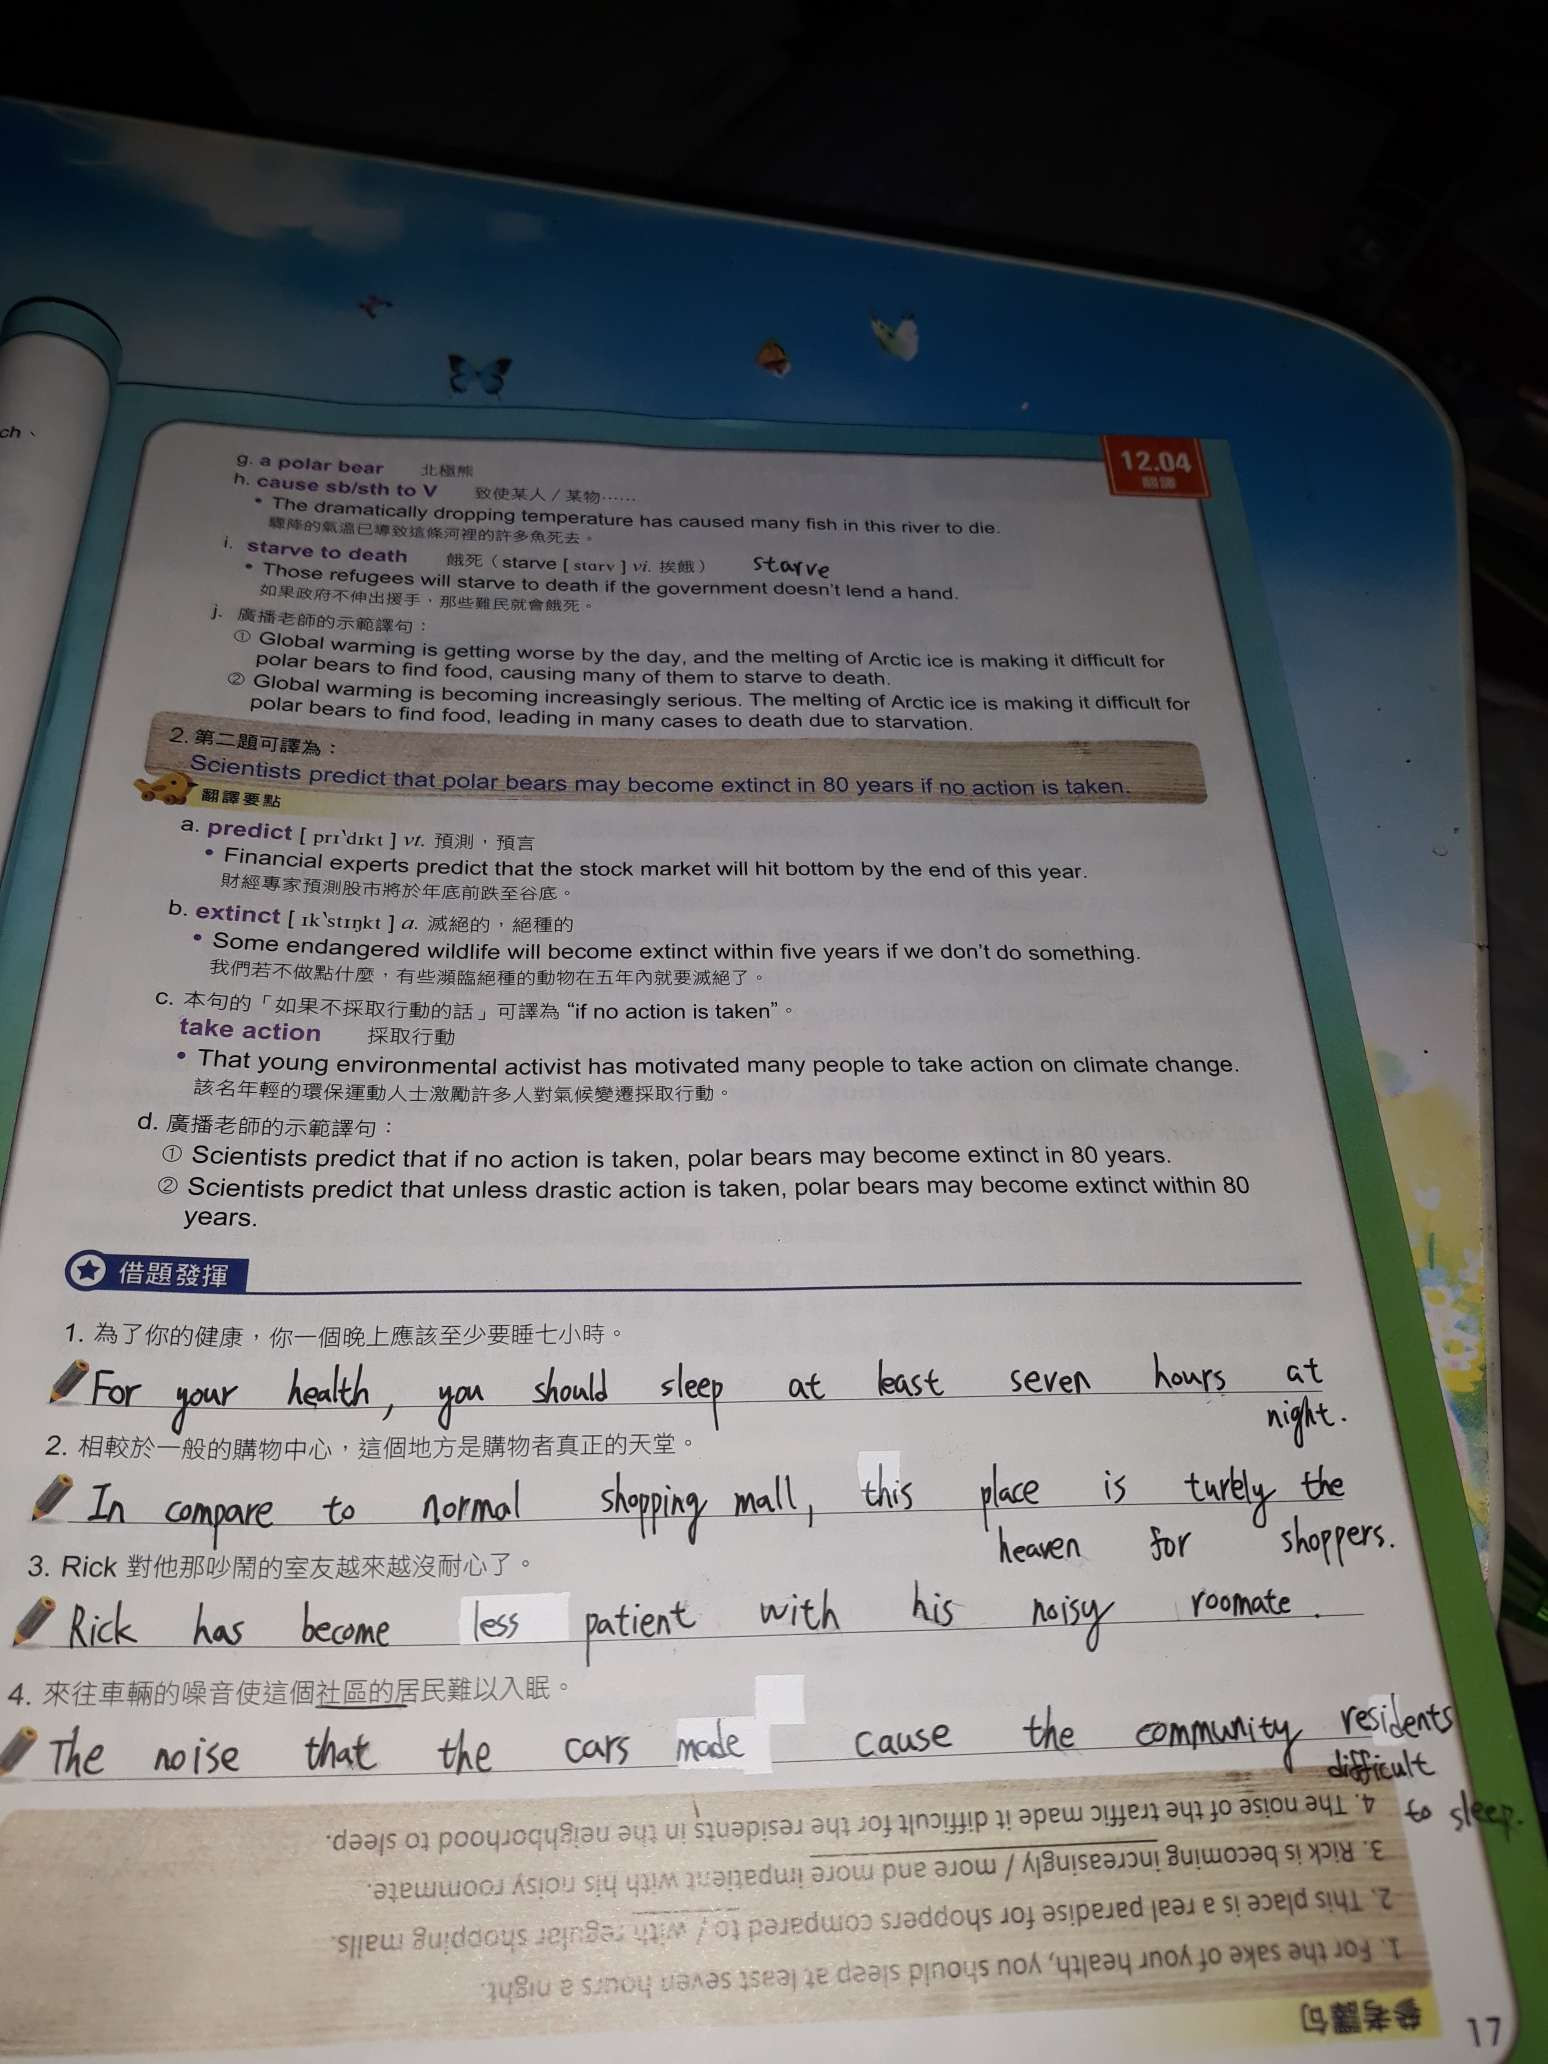 ch、
12.04
翻譯
g. a polar bear 北極熊
h. cause sb/sth to V 致使某人/某物……
• The dramatically dropping temperature has caused many fish in this river to die.
驟降的氣溫已導致這條河裡的許多魚死去。
i. starve to death 餓死（starve [ stɑrv ] vi. 挨餓） starve
• Those refugees will starve to death if the government doesn't lend a hand.
如果政府不伸出援手，那些難民就會餓死。
j. 廣播老師的示範譯句：
① Global warming is getting worse by the day, and the melting of Arctic ice is making it difficult for
polar bears to find food, causing many of them to starve to death.
② Global warming is becoming increasingly serious. The melting of Arctic ice is making it difficult for
polar bears to find food, leading in many cases to death due to starvation.
2. 第二題可譯為：
Scientists predict that polar bears may become extinct in 80 years if no action is taken.
翻譯要點
a. predict [ prɪˋdɪkt ] vt. 預測，預言
• Financial experts predict that the stock market will hit bottom by the end of this year.
財經專家預測股市將於年底前跌至谷底。
b. extinct [ ɪkˋstɪŋkt ] a. 滅絕的，絕種的
• Some endangered wildlife will become extinct within five years if we don't do something.
我們若不做點什麼，有些瀕臨絕種的動物在五年內就要滅絕了。
c. 本句的「如果不採取行動的話」可譯為 “if no action is taken”。
take action 採取行動
• That young environmental activist has motivated many people to take action on climate change.
該名年輕的環保運動人士激勵許多人對氣候變遷採取行動。
d. 廣播老師的示範譯句：
① Scientists predict that if no action is taken, polar bears may become extinct in 80 years.
② Scientists predict that unless drastic action is taken, polar bears may become extinct within 80
years.
借題發揮
1. 為了你的健康，你一個晚上應該至少要睡七小時。
For your health, you should sleep at least seven hours at
night.
2. 相較於一般的購物中心，這個地方是購物者真正的天堂。
In compare to normal shopping mall, this place is turely the
heaven for shoppers.
3. Rick 對他那吵鬧的室友越來越沒耐心了。
Rick has become less patient with his noisy roomate.
4. 來往車輛的噪音使這個社區的居民難以入眠。
The noise that the cars made cause the community residents
difficult
to sleep.
4. The noise of the traffic made it difficult for the residents in the neighborhood to sleep.
3. Rick is becoming increasingly / more and more impatient with his noisy roommate.
2. This place is a real paradise for shoppers compared to / with regular shopping malls.
1. For the sake of your health, you should sleep at least seven hours a night.
參考譯句
17